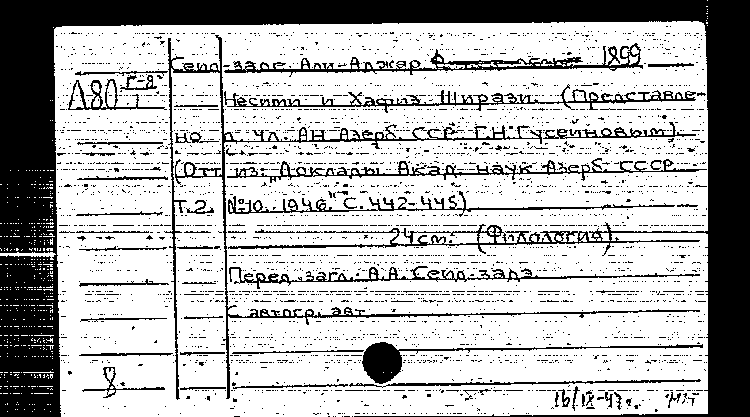 Сеид-заде, Али-Аджар 1899
Л80 Г-8
1
Несими и Хафиз Ширази. (Представле-
но д. чл. АН Азерб. ССР Г.Н. Гусейновым).
(Отт. из: „Доклады Акад. наук Азерб. СССР
Т.2, №10. 1946." С. 442-445).
24см. (Филология).
Перед загл.: А.А. Сеид-задэ.
С автогр. авт.
8
16/IX-47г.